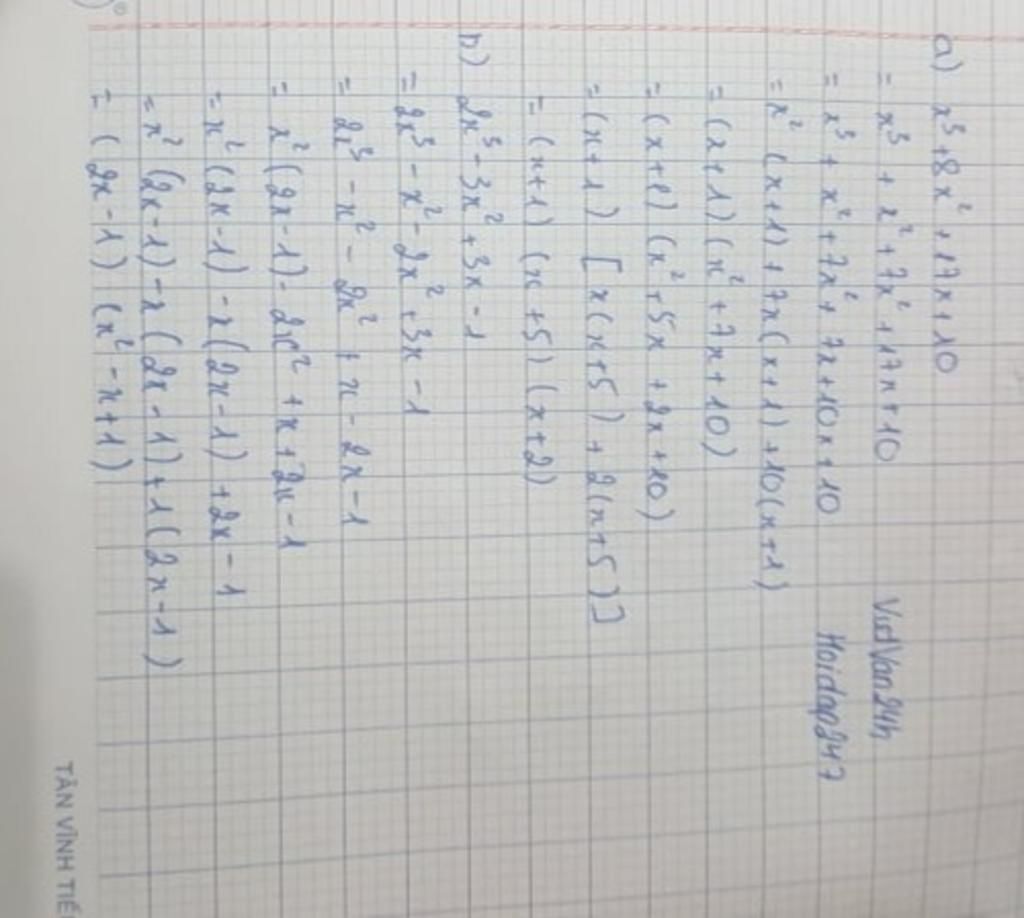 a) x³+8x²+17x+10
= x³ + x²+7x²+17x+10
= x³ + x²+7x²+7x+10x+10
= x² (x+1)+7x(x+1)+10(x+1)
= (x+1)(x²+7x+10)
= (x+1) (x²+5x+2x+10)
= (x+1) [x(x+5)+2(x+5)]
= (x+1) (x+5) (x+2)
b) 2x³-3x²+3x-1
= 2x³-x²-2x²+3x-1
= 2x³-x²-2x²+x-2x-1
= x²(2x-1)-2x²+x+2x-1
= x²(2x-1)-x(2x-1)+2x-1
= x²(2x-1)-x(2x-1)+1(2x-1)
= (2x-1) (x²-x+1)
VietVan24h
Hoidap247